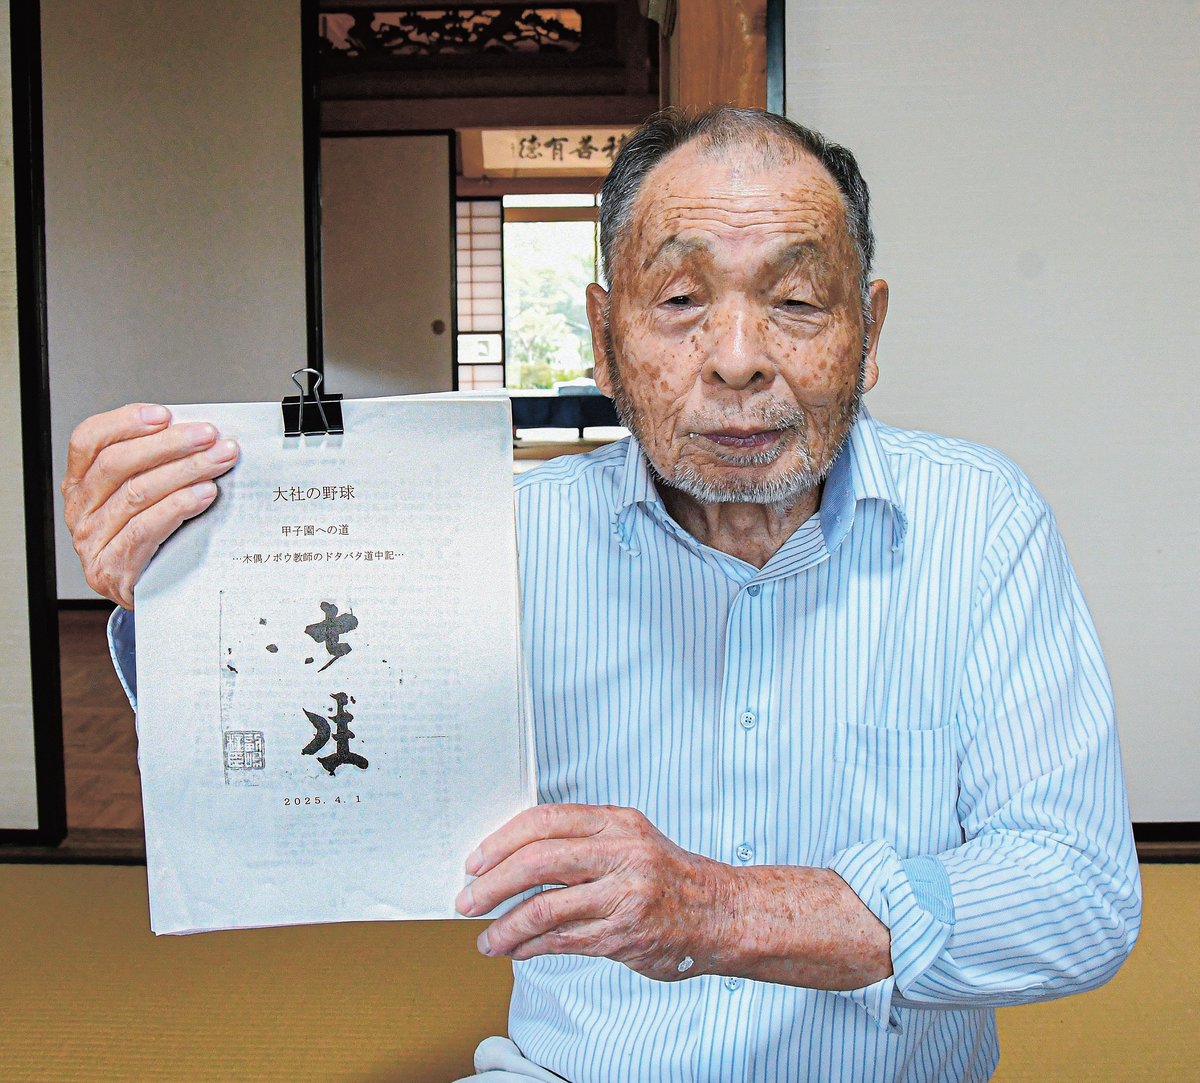 積善有徳
大社の野球
甲子園への道
…木偶ノボウ教師のドタバタ道中記…
2025.4.1